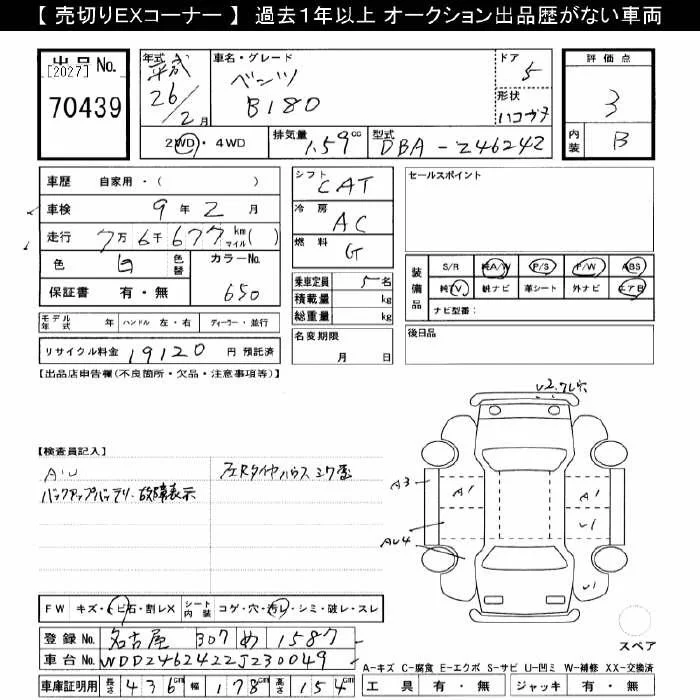 【 売切りEXコーナー 】 過去1年以上 オークション出品歴がない車両
出品No.
[2027]
70439
年式 平成 26/2月
車名・グレード
ベンツ
B180
ドア 5
形状 ハコゲタ
評価点
3
内装 B
2WD・4WD
排気量 1.59cc
型式 DBA-246242
車歴 自家用・( )
車検 9年2月
走行 7万6千677km マイル( )
色 白 色替 カラーNo. 650
保証書 有・無
シフト CAT
冷房 AC
燃料 G
乗車定員 5名
積載量 kg
総重量 kg
名変期限 月 日
セールスポイント
装備品 S/R 純A/W P/S P/W ABS
純TV 純ナビ 革シート 外ナビ エアB
ナビ型番:
後日品
モデル年式 年 ハンドル 左・右 ディーラー・並行
リサイクル料金 19120 円 預託済
【出品店申告欄(不良箇所・欠品・注意事項等)】
【検査員記入】
AW
バックアップバッテリー故障表示
左Rタイヤハウス ミワ番
V2.クレ穴
A3
A1
A1
V1
AU4
V1
FW キズ・トビ石・割レX シート内装 コゲ・穴・汚レ・シミ・破レ・スレ
登録No. 名古屋 307 め 1587
車台No. WDD2462422J230049
車庫証明用 長さ 436cm 幅 178cm 高さ 154cm
スペア
A-キズ C-腐食 E-エクボ S-サビ U-凹ミ W-補修 XX-交換済
工具 有・無 ジャッキ 有・無